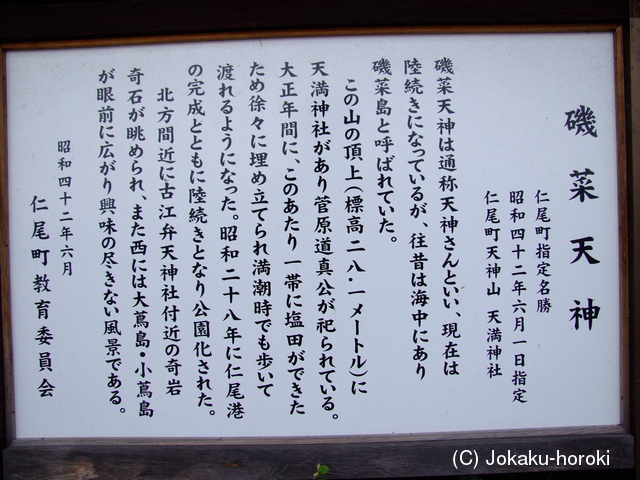 磯菜天神
仁尾町指定名勝
昭和四十二年六月一日指定
仁尾町天神山　天満神社
磯菜天神は通称天神さんといい、現在は
陸続きになっているが、往昔は海中にあり
磯菜島と呼ばれていた。
この山の頂上（標高二八・一メートル）に
天満神社があり菅原道真公が祀られている。
大正年間に、このあたり一帯に塩田ができた
ため徐々に埋め立てられ満潮時でも歩いて
渡れるようになった。昭和二十八年に仁尾港
の完成とともに陸続きとなり公園化された。
北方間近に古江弁天神社付近の奇岩
奇石が眺められ、また西には大蔦島・小蔦島
が眼前に広がり興味の尽きない風景である。
昭和四十二年六月
仁尾町教育委員会
(C) Jokaku-horoki